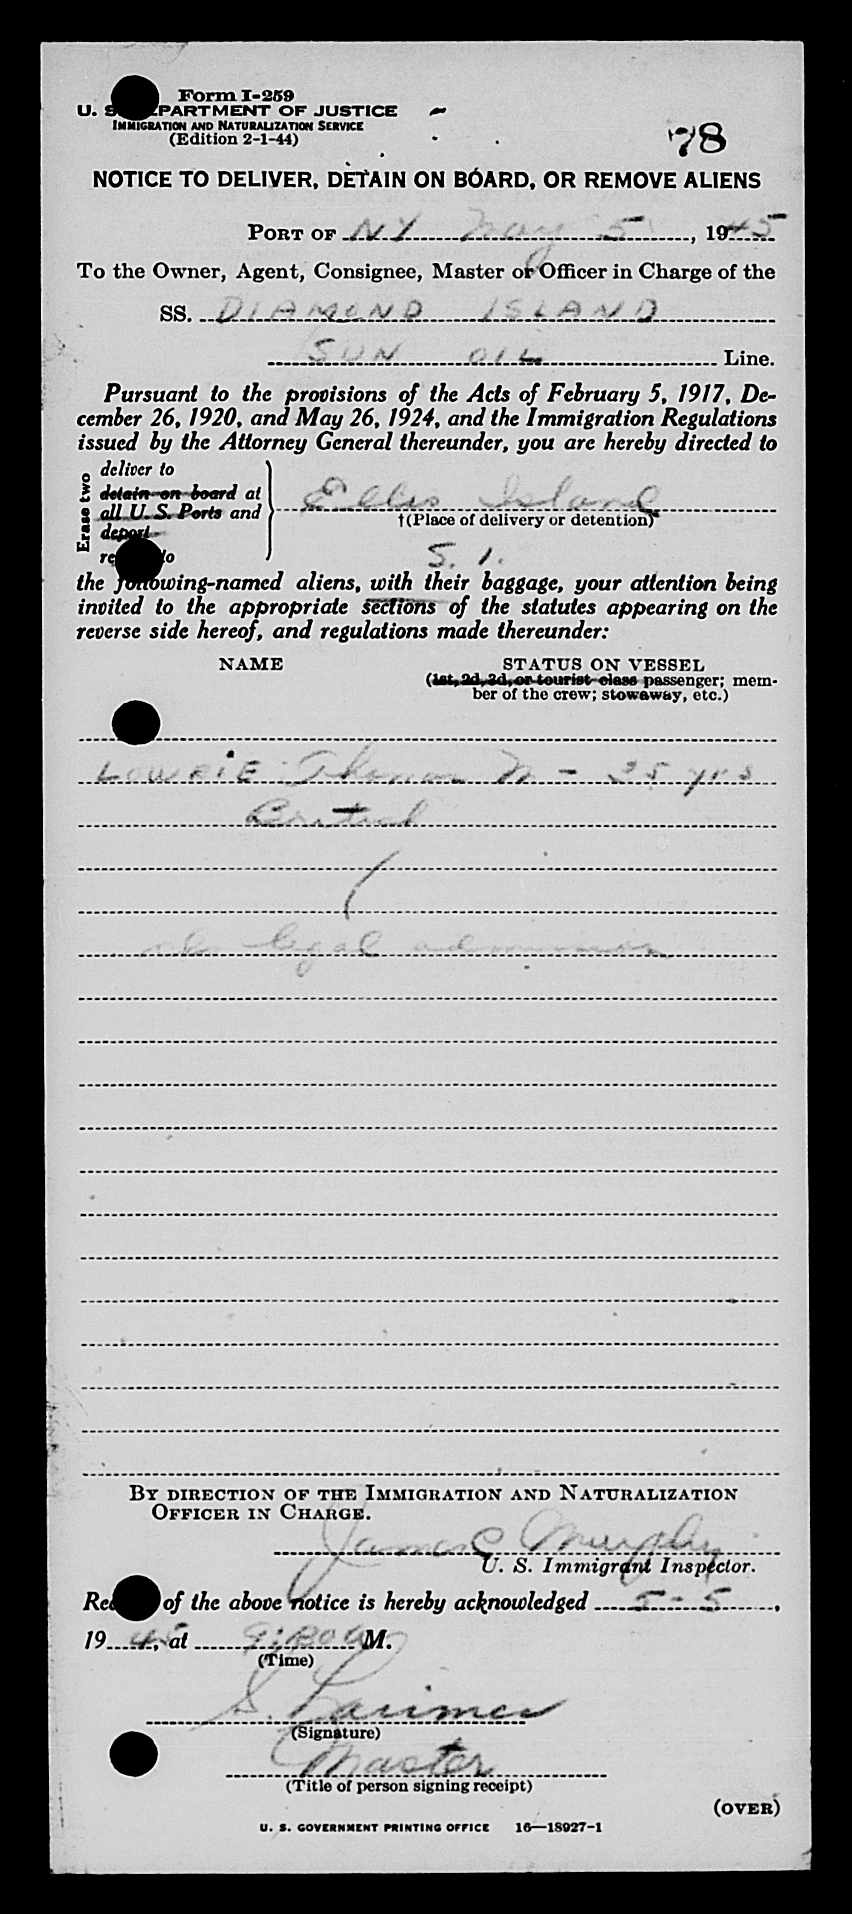 Form I-259
U. S. DEPARTMENT OF JUSTICE
IMMIGRATION AND NATURALIZATION SERVICE
(Edition 2-1-44)
78
NOTICE TO DELIVER, DETAIN ON BOARD, OR REMOVE ALIENS
PORT OF NY May 5, 1945
To the Owner, Agent, Consignee, Master or Officer in Charge of the
SS. DIAMOND ISLAND
SUN OIL Line.
Pursuant to the provisions of the Acts of February 5, 1917, De-
cember 26, 1920, and May 26, 1924, and the Immigration Regulations
issued by the Attorney General thereunder, you are hereby directed to
Erase two
deliver to
detain on board at
all U. S. Ports and
deport
to
Ellis Island
†(Place of delivery or detention)
S. I.
the following-named aliens, with their baggage, your attention being
invited to the appropriate sections of the statutes appearing on the
reverse side hereof, and regulations made thereunder:
NAME STATUS ON VESSEL
(1st, 2d, 3d, or tourist class passenger; mem-
ber of the crew; stowaway, etc.)
LOWRIE Thomas M - 25 yrs
British
legal admission
BY DIRECTION OF THE IMMIGRATION AND NATURALIZATION
OFFICER IN CHARGE.
James C Murphy
U. S. Immigrant Inspector.
of the above notice is hereby acknowledged 5-5,
1945, at 9:30 A M.
(Time)
S. Larimer
(Signature)
Master
(Title of person signing receipt)
(OVER)
U. S. GOVERNMENT PRINTING OFFICE 16—18927-1